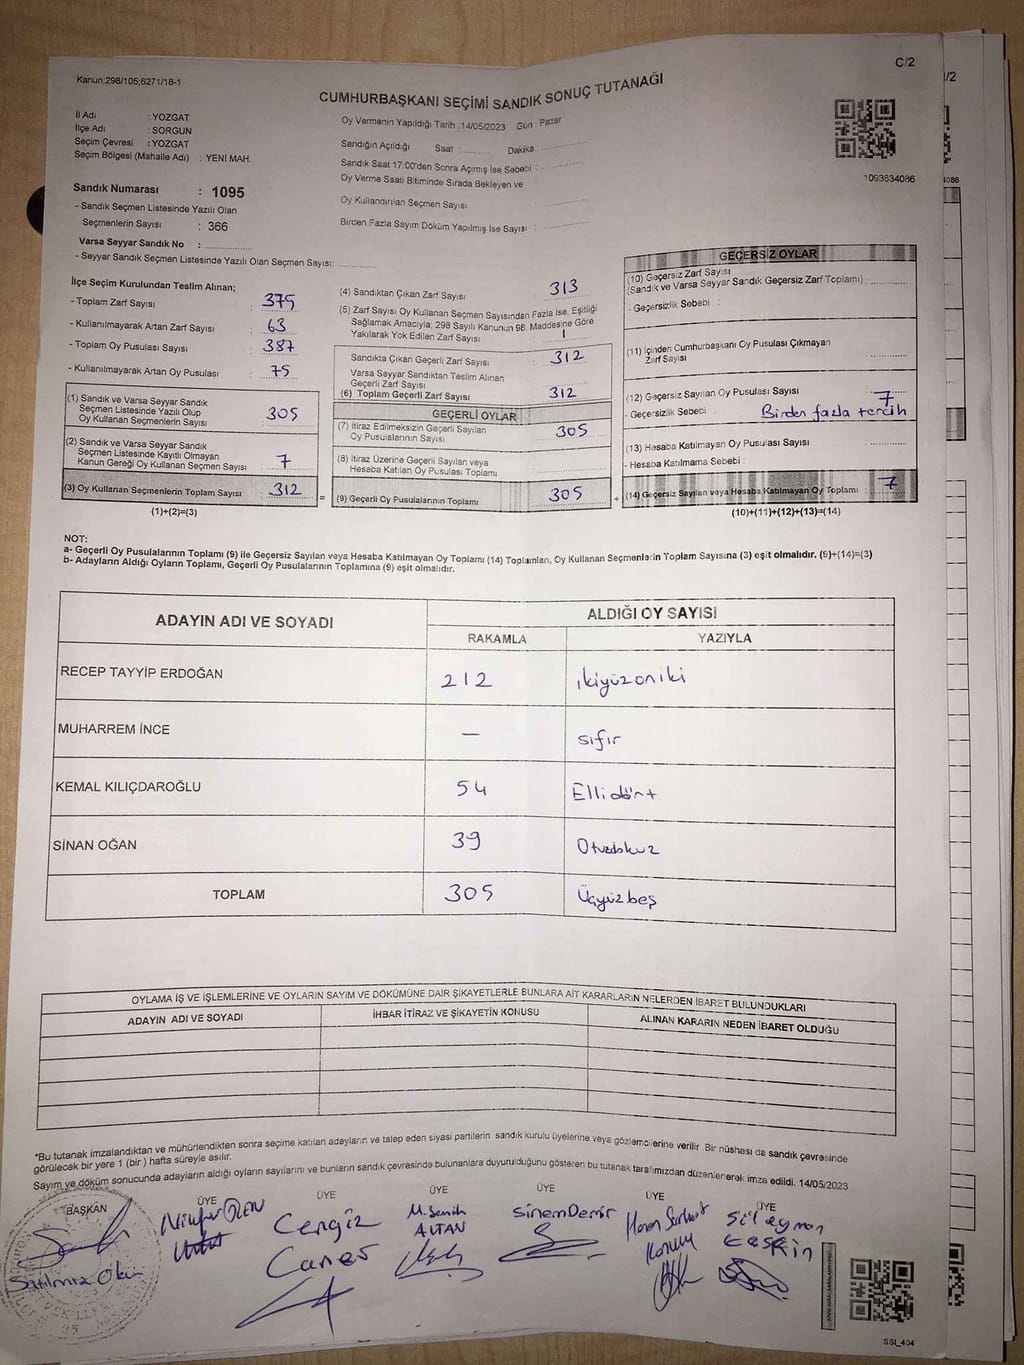 Kanun:298/105,6271/18-1
C/2
CUMHURBAŞKANI SEÇİMİ SANDIK SONUÇ TUTANAĞI
İl Adı : YOZGAT
İlçe Adı : SORGUN
Seçim Çevresi : YOZGAT
Seçim Bölgesi (Mahalle Adı) : YENİ MAH.
Oy Vermenin Yapıldığı Tarih : 14/05/2023 Gün : Pazar
Sandığın Açıldığı Saat : Dakika :
Sandık Saat 17:00'den Sonra Açılmış İse Sebebi :
Oy Verme Saati Bitiminde Sırada Bekleyen ve
Oy Kullandırılan Seçmen Sayısı :
Birden Fazla Sayım Döküm Yapılmış İse Sayısı :
1093634086
Sandık Numarası : 1095
- Sandık Seçmen Listesinde Yazılı Olan
Seçmenlerin Sayısı : 366
Varsa Seyyar Sandık No :
- Seyyar Sandık Seçmen Listesinde Yazılı Olan Seçmen Sayısı:
İlçe Seçim Kurulundan Teslim Alınan;
- Toplam Zarf Sayısı : 375
- Kullanılmayarak Artan Zarf Sayısı : 63
- Toplam Oy Pusulası Sayısı : 387
- Kullanılmayarak Artan Oy Pusulası : 75
(1) Sandık ve Varsa Seyyar Sandık
Seçmen Listesinde Yazılı Olup
Oy Kullanan Seçmenlerin Sayısı : 305
(2) Sandık ve Varsa Seyyar Sandık
Seçmen Listesinde Kayıtlı Olmayan
Kanun Gereği Oy Kullanan Seçmen Sayısı : 7
(3) Oy Kullanan Seçmenlerin Toplam Sayısı : 312
(1)+(2)=(3)
(4) Sandıktan Çıkan Zarf Sayısı : 313
(5) Zarf Sayısı Oy Kullanan Seçmen Sayısından Fazla İse, Eşitliği
Sağlamak Amacıyla; 298 Sayılı Kanunun 98. Maddesine Göre
Yakılarak Yok Edilen Zarf Sayısı : 1
Sandıkta Çıkan Geçerli Zarf Sayısı : 312
Varsa Seyyar Sandıktan Teslim Alınan
Geçerli Zarf Sayısı
(6) Toplam Geçerli Zarf Sayısı : 312
GEÇERLİ OYLAR
(7) İtiraz Edilmeksizin Geçerli Sayılan
Oy Pusulalarının Sayısı : 305
(8) İtiraz Üzerine Geçerli Sayılan veya
Hesaba Katılan Oy Pusulası Toplamı
(9) Geçerli Oy Pusulalarının Toplamı : 305
GEÇERSİZ OYLAR
(10) Geçersiz Zarf Sayısı
(Sandık ve Varsa Seyyar Sandık Geçersiz Zarf Toplamı) :
- Geçersizlik Sebebi :
(11) İçinden Cumhurbaşkanı Oy Pusulası Çıkmayan
Zarf Sayısı :
(12) Geçersiz Sayılan Oy Pusulası Sayısı : 7
- Geçersizlik Sebebi : Birden fazla tercih
(13) Hesaba Katılmayan Oy Pusulası Sayısı :
- Hesaba Katılmama Sebebi :
(14) Geçersiz Sayılan veya Hesaba Katılmayan Oy Toplamı : 7
(10)+(11)+(12)+(13)=(14)
NOT:
a- Geçerli Oy Pusulalarının Toplamı (9) ile Geçersiz Sayılan veya Hesaba Katılmayan Oy Toplamı (14) Toplamları, Oy Kullanan Seçmenlerin Toplam Sayısına (3) eşit olmalıdır. (9)+(14)=(3)
b- Adayların Aldığı Oyların Toplamı, Geçerli Oy Pusulalarının Toplamına (9) eşit olmalıdır.
ADAYIN ADI VE SOYADI ALDIĞI OY SAYISI
RAKAMLA YAZIYLA
RECEP TAYYİP ERDOĞAN 212 ikiyüzoniki
MUHARREM İNCE — sıfır
KEMAL KILIÇDAROĞLU 54 Ellidört
SİNAN OĞAN 39 Otuzdokuz
TOPLAM 305 Üçyüzbeş
OYLAMA İŞ VE İŞLEMLERİNE VE OYLARIN SAYIM VE DÖKÜMÜNE DAİR ŞİKAYETLERLE BUNLARA AİT KARARLARIN NELERDEN İBARET BULUNDUKLARI
ADAYIN ADI VE SOYADI İHBAR İTİRAZ VE ŞİKAYETİN KONUSU ALINAN KARARIN NEDEN İBARET OLDUĞU
*Bu tutanak imzalandıktan ve mühürlendikten sonra seçime katılan adayların ve talep eden siyasi partilerin sandık kurulu üyelerine veya gözlemcilerine verilir. Bir nüshası da sandık çevresinde
görülecek bir yere 1 (bir) hafta süreyle asılır.
Sayım ve döküm sonucunda adayların aldığı oyların sayılarını ve bunların sandık çevresinde bulunanlara duyurulduğunu gösteren bu tutanak tarafımızdan düzenlenerek imza edildi. 14/05/2023
BAŞKAN ÜYE ÜYE ÜYE ÜYE ÜYE ÜYE
Cengiz
Caner
M. Semih
ALTAN
Sinem Demir
Süleyman
SSİ_404